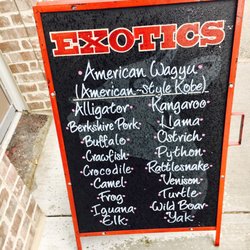 EXOTICS
• American Wagyu •
(American-Style Kobe)
• Alligator •
• Berkshire Pork •
• Buffalo •
• Crawfish •
• Crocodile •
• Camel •
• Frog •
• Iguana •
• Elk •
• Kangaroo •
• Llama •
• Ostrich •
• Python •
• Rattlesnake •
• Venison •
• Turtle •
• Wild Boar •
• Yak •